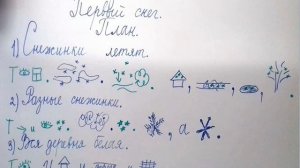 Первый снег.
План.
1) Снежинки летят.
2) Разные снежинки.
, а
3) Вся деревня белая.